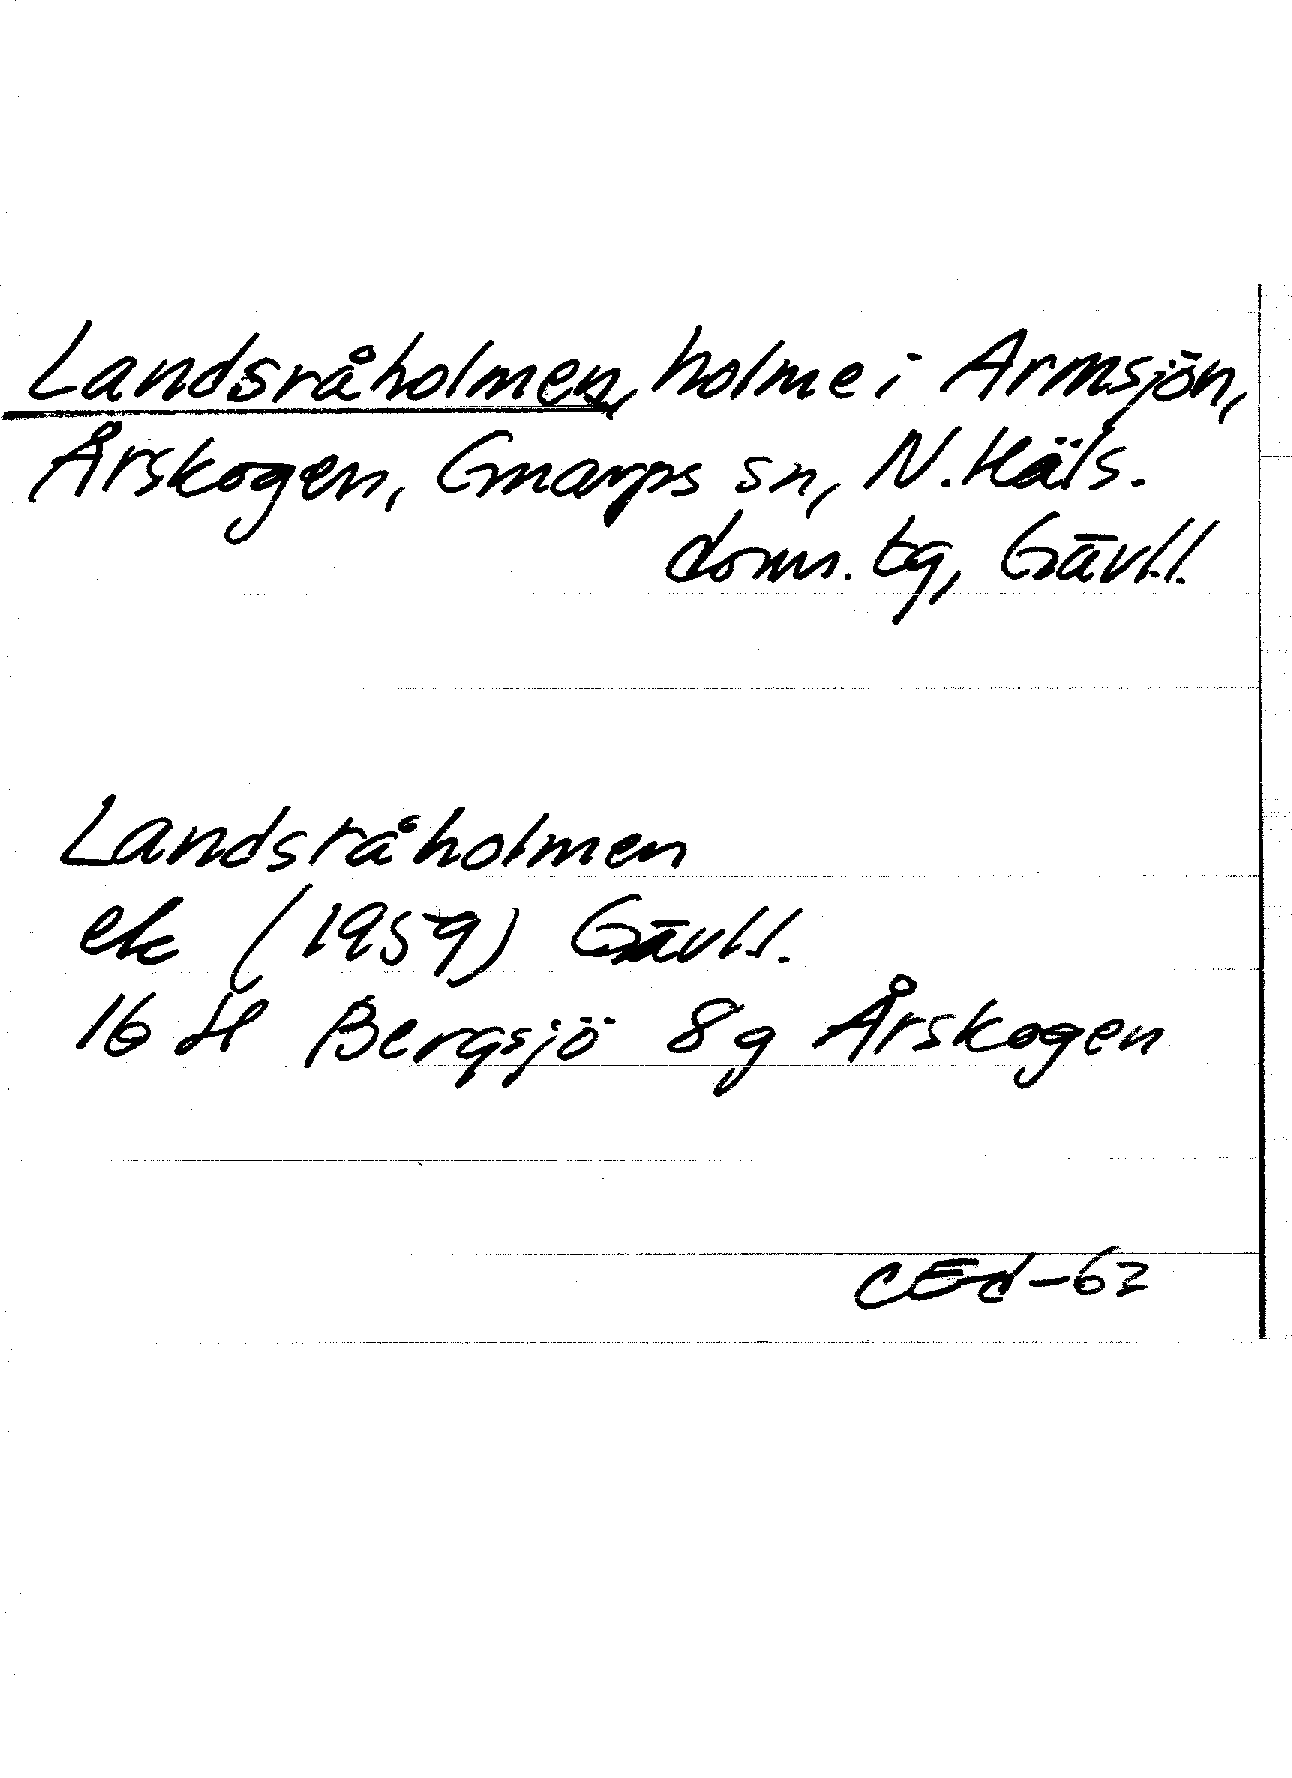 Landsråholmen, holme i Armsjön,
Årskogen, Gnarps sn, N. Häls.
doms. tg, Gävl.l.
Landsråholmen
ek (1959) Gävl.l.
16 H Bergsjö 8g Årskogen
CEd-62